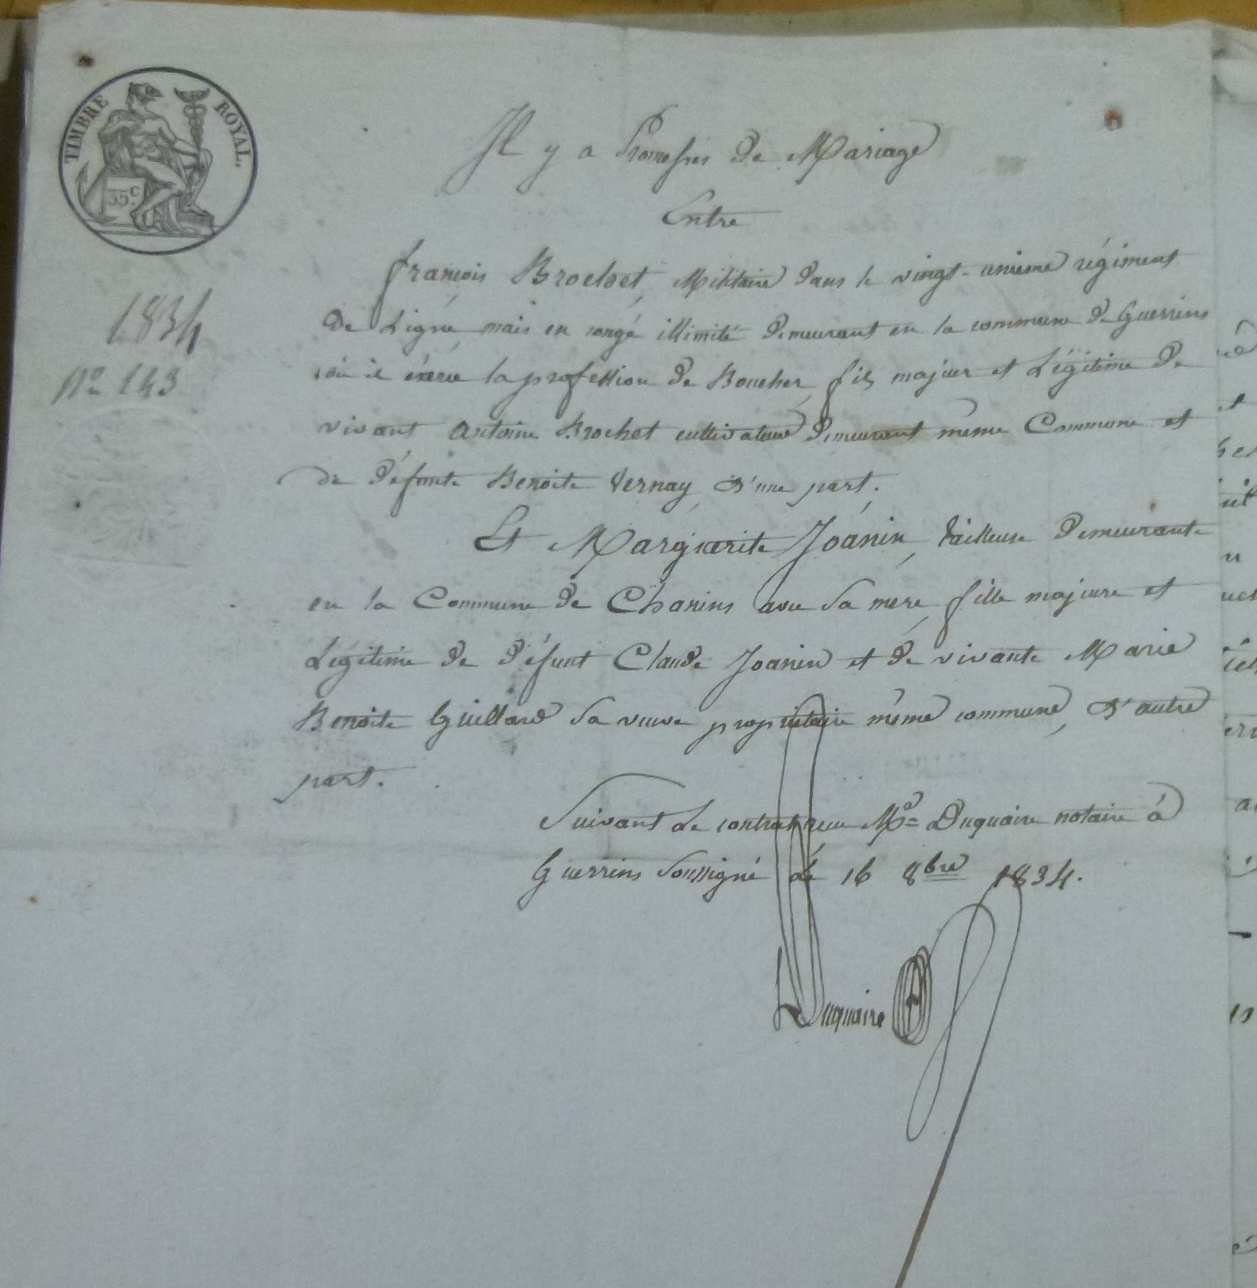 TIMBRE ROYAL.
35.c
1834
No 143
Il y a Promesses de Mariage
Entre
françois Brochet, Militaire dans le vingt-unieme régiment
de Ligne, mais en congé illimité demeurant en la commune de Guerrins
où il éxerce la profession de Boucher, fils majeur et Légitime de
vivant Antoine Brochet cultivateur demeurant même Commune et
de défunte Benoite Vernay, d'une part.
Et Marguerite Joanin, tailleuse demeurante
en la Commune de Chanins avec sa mère, fille majeure et
Légitime de défunt Claude Joanin et de vivante Marie
Benoite Guillard sa veuve propriétaire même commune, d'autre
part.
Suivant le contrat reçu Me Duquaire notaire à
Guerrins soussigné le 16 8bre 1834.
Duquaire